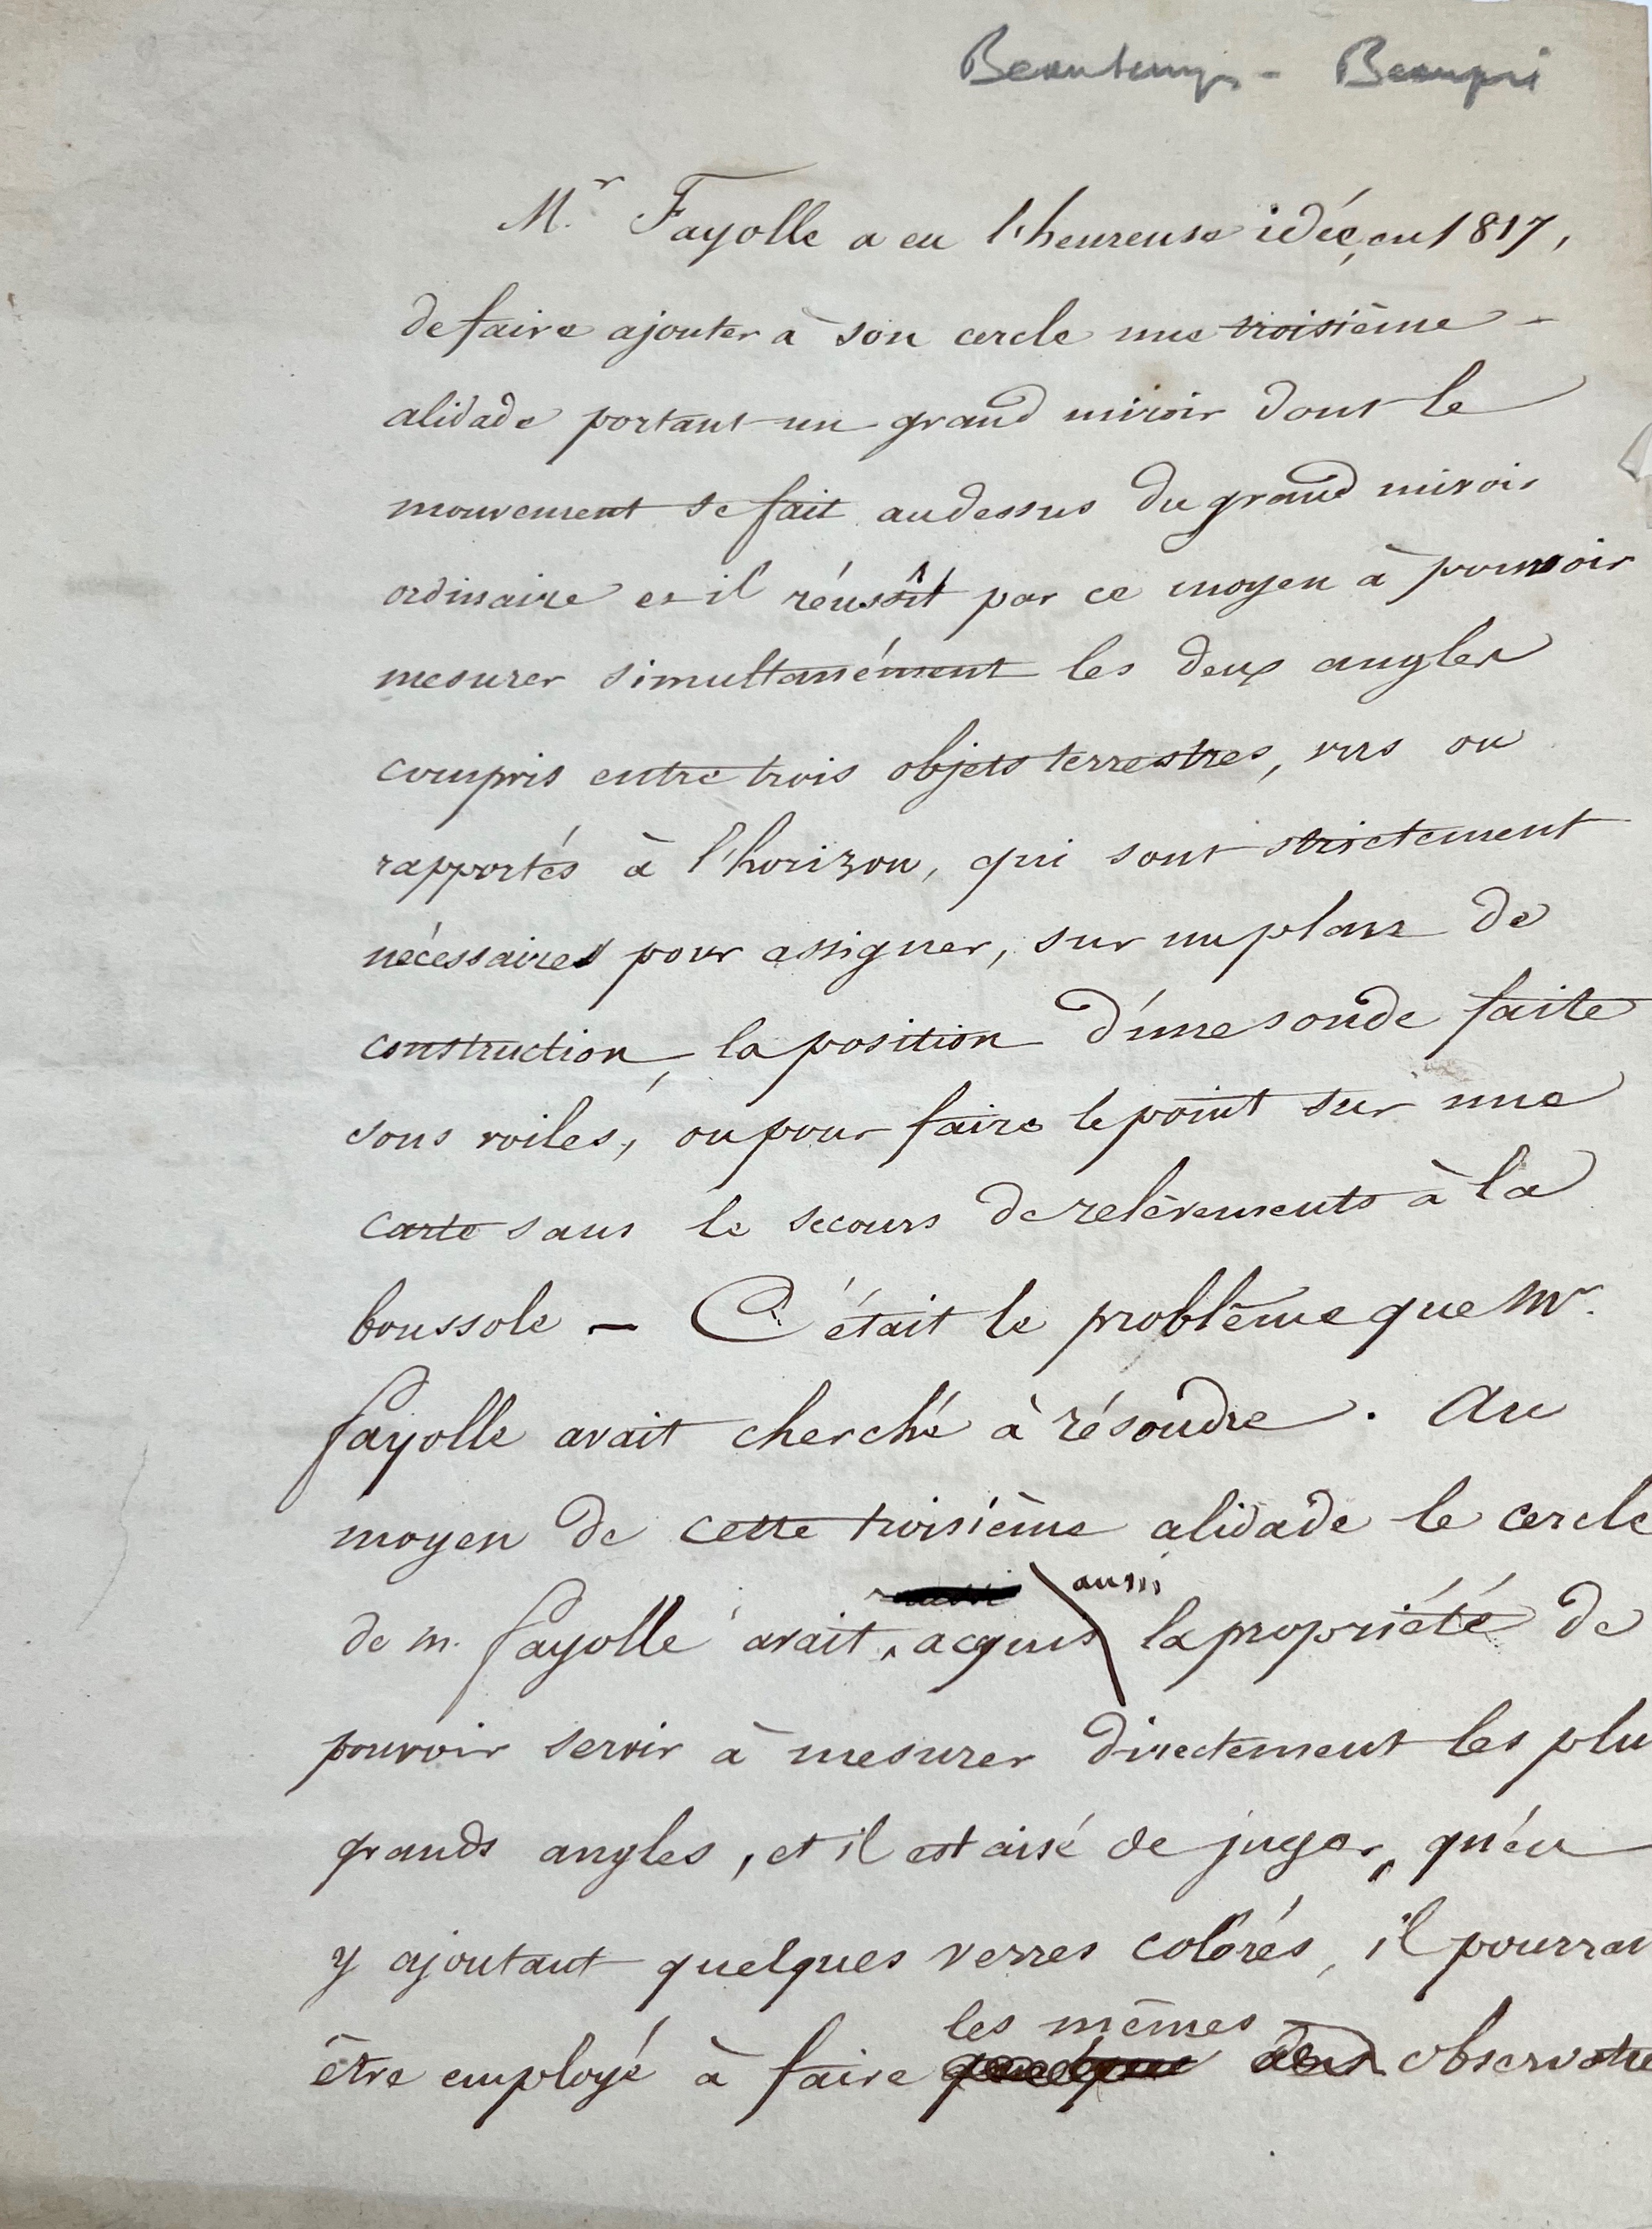 Beautemps - Beaupré
Mr. Fayolle a eu l'heureuse idée, en 1817,
de faire ajouter à son cercle une troisième -
alidade portant un grand miroir dont le
mouvement se fait audessus du grand miroir
ordinaire et il réussît par ce moyen à pouvoir
mesurer simultanément les deux angles
compris entre trois objets terrestres, vus ou
rapportés à l'horizon, qui sont strictement
nécessaires pour assigner, sur un plan de
construction, la position d'une sonde faite
sous voiles, ou pour faire le point sur une
carte sans le secours de relèvements à la
boussole - C'était le problême que Mr.
fayolle avait cherché à résoudre. Au
moyen de cette troisième alidade le cercle
aussi
de m. fayolle avait acquis la propriété de
pouvoir servir à mesurer directement les plu
grands angles, et il est aisé de juger, qu'en
y ajoutant quelques verres colorés, il pourrai
les mêmes
être employé à faire quelques des observatio